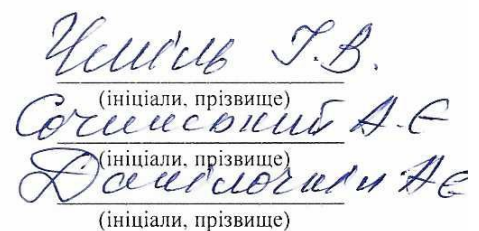 Чміль Т.В.
(ініціали, прізвище)
Сочинський А.Є
(ініціали, прізвище)
Данілочкін А Є
(ініціали, прізвище)